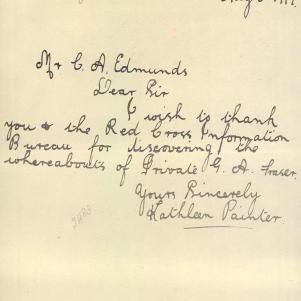 Mr C. A. Edmunds
Dear Sir
I wish to thank
you & the Red Cross Information
Bureau for discovering the
whereabouts of Private G. A. Fraser.
Yours Sincerely
Kathleen Painter.